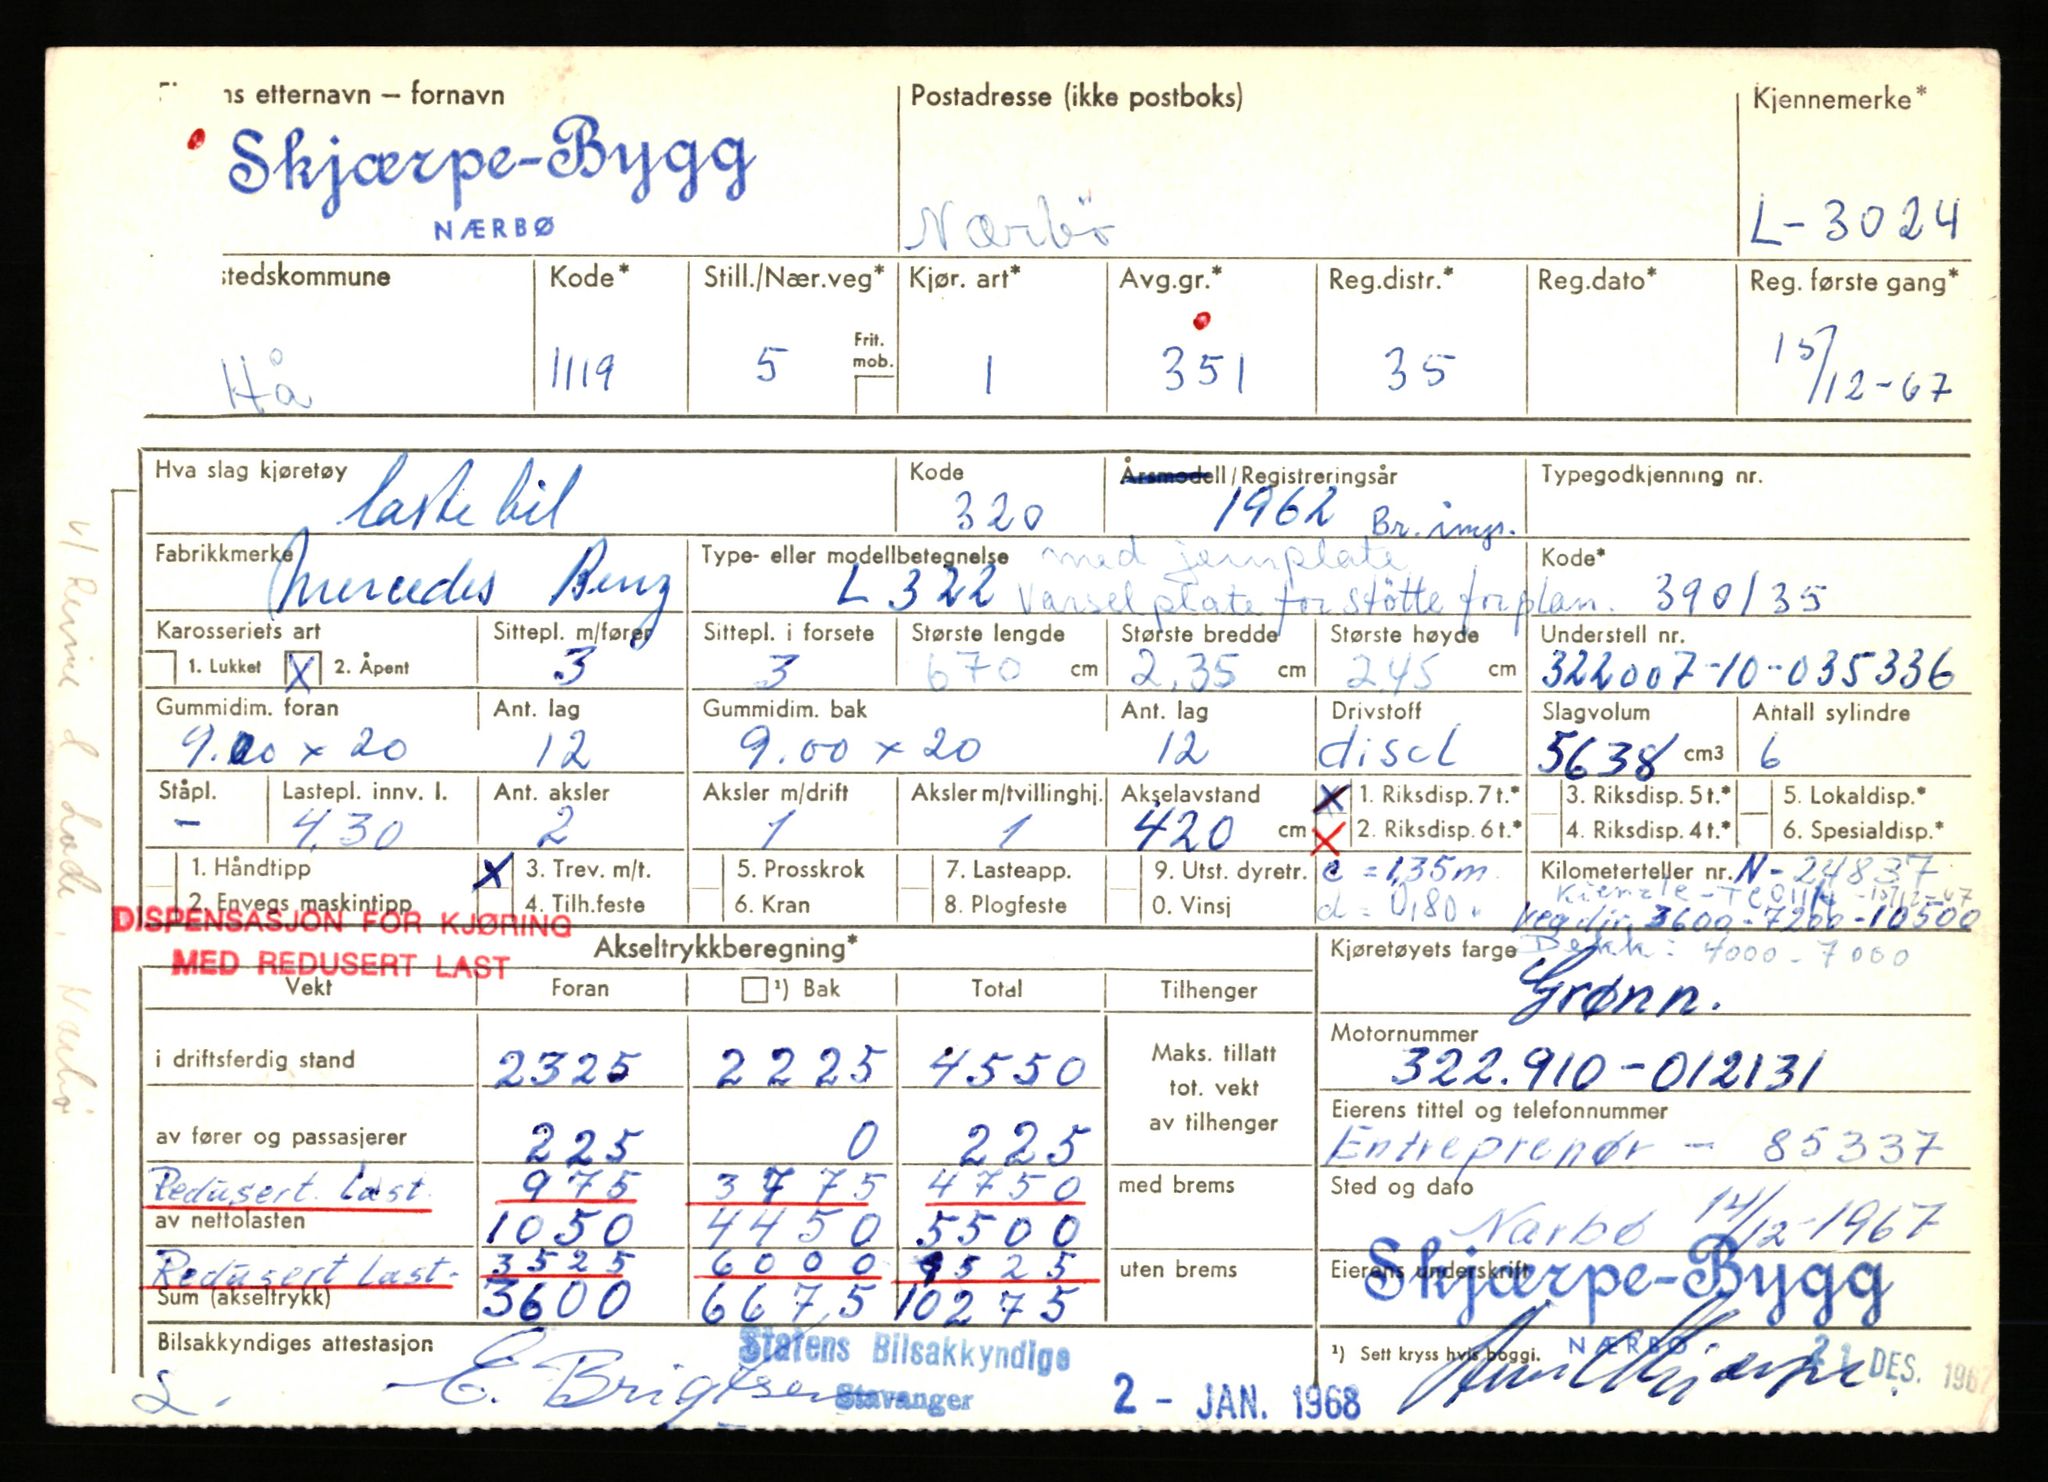 ns etternavn — fornavn Postadresse (ikke postboks) Kjennemerke*
Skjærpe-Bygg
NÆRBØ Nærbö L-3024
stedskommune Kode* Still./Nær.veg* Kjør. art* Avg.gr.* Reg.distr.* Reg.dato* Reg. første gang*
Frit. mob.
Hå 1119 5 1 351 35 15/12-67
Hva slag kjøretøy Kode Årsmodell/Registreringsår Typegodkjenning nr.
lastebil 320 1962 Br. imp.
Fabrikkmerke Type- eller modellbetegnelse med jernplate Kode*
Mercedes Benz L 322 Varselplate for støtte for plan. 390135
Karosseriets art Sittepl. m/fører Sittepl. i forsete Største lengde Største bredde Største høyde Understell nr.
1. Lukket X 2. Åpent 3 3 670 cm 2,35 cm 245 cm 322007-10-035336
Gummidim. foran Ant. lag Gummidim. bak Ant. lag Drivstoff Slagvolum Antall sylindre
9.00 x 20 12 9.00 x 20 12 disel 5638 cm3 6
Ståpl. Lastepl. innv. l. Ant. aksler Aksler m/drift Aksler m/tvillinghj. Akselavstand X 1. Riksdisp. 7 t.* 3. Riksdisp. 5 t.* 5. Lokaldisp.*
- 4,30 2 1 1 420 cm X 2. Riksdisp. 6 t.* 4. Riksdisp. 4 t.* 6. Spesialdisp.*
1. Håndtipp X 3. Trev. m/t. 5. Prosskrok 7. Lasteapp. 9. Utst. dyretr. c = 1,35 m Kilometerteller nr. N-24837
Kienzle - TCO11/4 - 15/12-67
2. Envegs maskintipp 4. Tilh.feste 6. Kran 8. Plogfeste 0. Vinsj d = 0,80 " Vegdir. 3600-7200-10500
DISPENSASJON FOR KJØRING
MED REDUSERT LAST
Akseltrykkberegning* Kjøretøyets farge Dekk: 4000-7000
Vekt Foran ¹) Bak Total Tilhenger Grønn.
Motornummer
i driftsferdig stand 2325 2225 4550 Maks. tillatt tot. vekt av tilhenger 322.910-012131
Eierens tittel og telefonnummer
av fører og passasjerer 225 0 225 Entreprenør - 85337
Redusert. Last. 975 3775 4750 med brems Sted og dato
av nettolasten 1050 4450 5500 Nærbø 14/12-1967
Redusert Last- 3525 6000 9525 uten brems Eierens underskrift Skjærpe-Bygg
Sum (akseltrykk) 3600 6675 10275
Bilsakkyndiges attestasjon Statens Bilsakkyndige ¹) Sett kryss hvis boggi. NÆRBØ 21 DES. 1967
E. Brigtsen Stavanger 2 - JAN. 1968